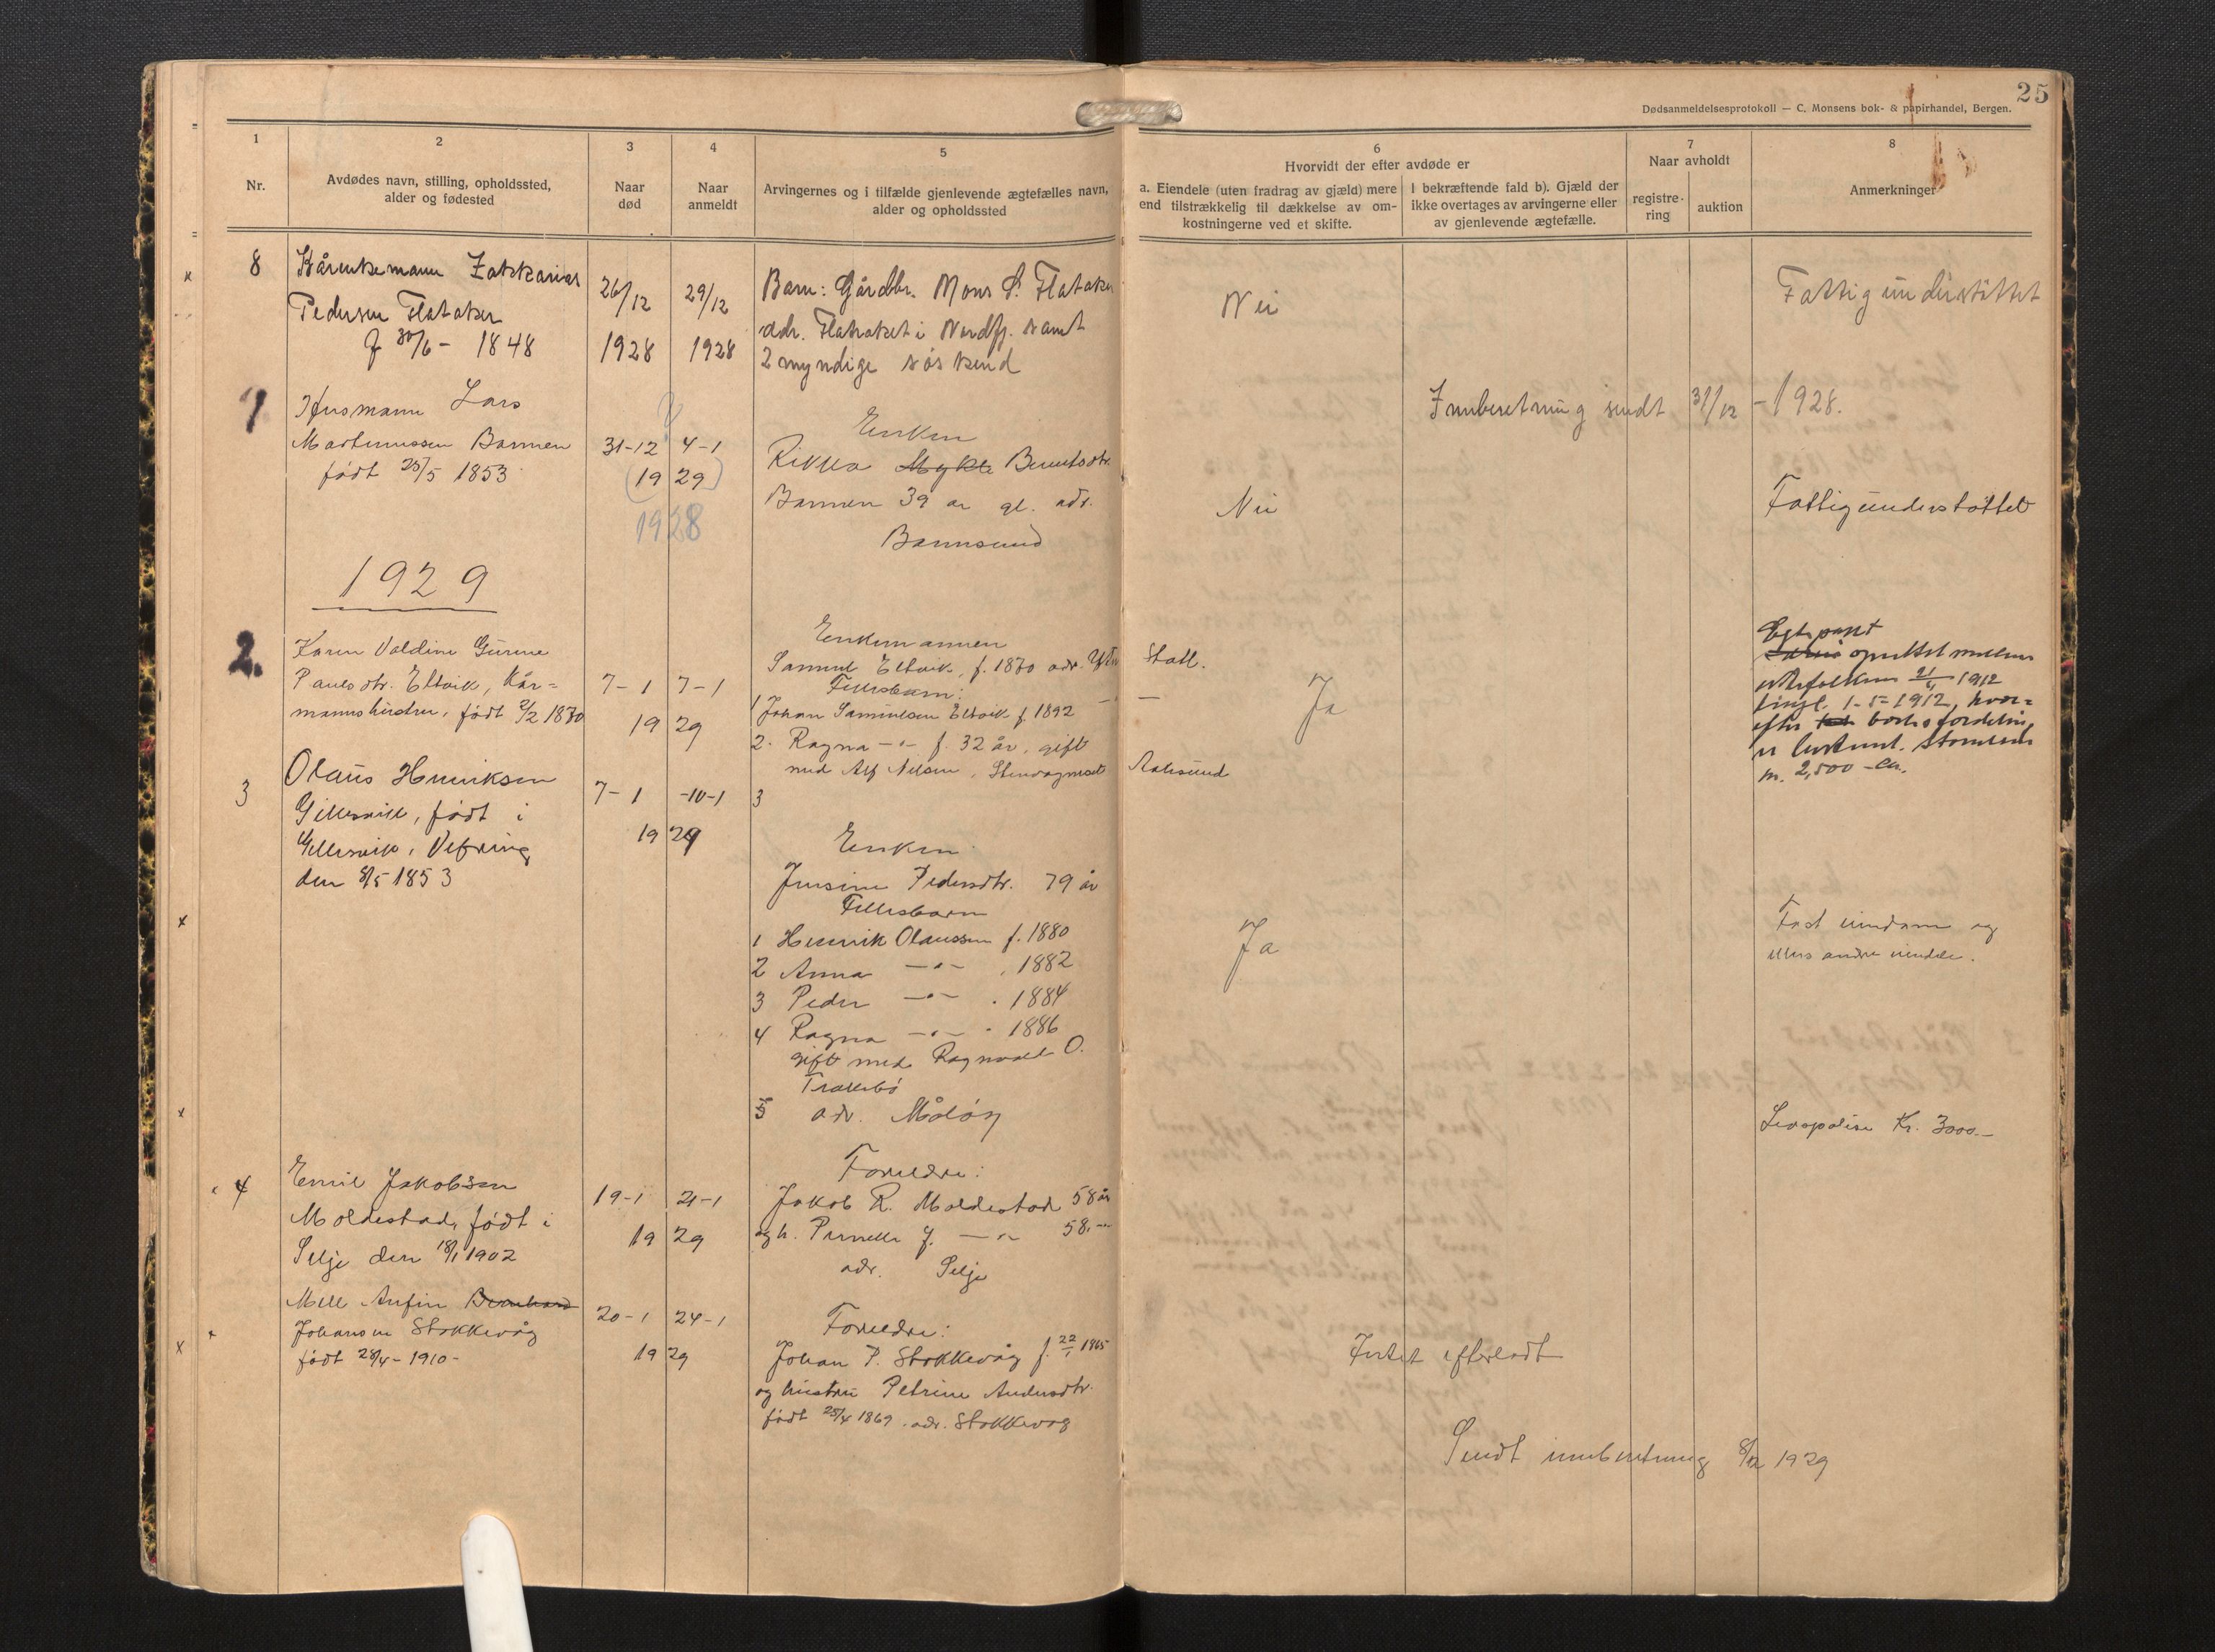 25
Dødsanmeldelsesprotokoll — C. Monsens bok- & papirhandel, Bergen.
1
2
3
4
5
6
7
8
Nr.
Avdødes navn, stilling, opholdssted,
alder og fødested
Naar
død
Naar
anmeldt
Arvingernes og i tilfælde gjenlevende ægtefælles navn,
alder og opholdssted
Hvorvidt der efter avdøde er
a. Eiendele (uten fradrag av gjæld) mere
end tilstrækkelig til dækkelse av om-
kostningerne ved et skifte.
I bekræftende fald b). Gjæld der
ikke overtages av arvingerne eller
av gjenlevende ægtefælle.
Naar avholdt
registre-
ring
auktion
Anmerkninger
8
Kårenkemann Zakkarias
Pedersen Flataker
f 30/6 - 1848
26/12
1928
29/12
1928
Barn: Gårdbr. Mons S. Flataker
adr. Flatraket i Nordfj. samt
2 myndige søskend
Nei
Fattigunderstøttet
Innberetning sendt 31/12 - 1928.
1
Husmann Lars
Martinussen Barmen
født 25/5 1853
31-12
4-1
(19 29)
1928
Enken
Rikka Myklb Berntsdtr.
Barmen 39 år gl. adr.
Barmsund
Nei
Fattigunderstøttet
1929
2.
Karen Valdine Gurine
Paulsdtr. Eltvik, kår=
mannshustru, født 2/2 1870
7-1
7-1
19 29
Enkemannen
Samuel Eltvik, f. 1870 adr. Ytre Statt.
Fellesbarn:
1 Johan Samuelsen Eltvik f. 1892 — " —
2. Ragna — " — f. 32 år, gift
med Alf Nilsen, Stenvågneset Aalesund
3
Ja
Egtepakt
oprettet mellem
ektefolkene 21/4 1912
tingl. 1-5-1912, hvor=
efter bosfordeling
er bestemt.
m. 2,500 -
3
Olaus Henriksen
Gillesvik, født i
Gillesvik, Vefring
den 8/5 1853
7-1
-10-1
19 29
Enken
Jensine Pedersdtr. 79 år
Fellesbarn
1 Henrik Olaussen f. 1880
2 Anna — " — . 1882
3 Peder — " — . 1884
4 Ragna — " — . 1886
gift med Ragnvald O.
Trællebø
5 adr. Måløy
Ja
Fast eiendom og
ellers andre eiendele.
4
Emil Jakobsen
Moldestad, født i
Selje den 18/1 1902
19-1
21-1
19 29
Foreldre:
Jakob R. Moldestad 58 år
og h. Pernelle J. — " — 58 - " -
adr. Selje
Livspolise Kr. 3000.-
Mell Anfin Bernhard
Johansen Stokkevåg
født 28/4 - 1910 -
20-1
24-1
19 29
Foreldre:
Johan P. Stokkevåg f. 22/1 1865
og hustru Petrine Andersdtr.
født 25/4 1869. adr. Stokkevåg
Intet efterladt
Sendt innberetning 8/12 1929